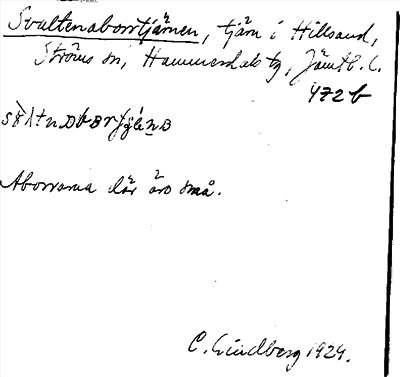 Svultenaborrtjärnen, tjärn i Hillsand,
Ströms sn, Hammerdals tg, Jämtl. l.
472 b
Aborrarna där äro små.
C. Lindberg 1924.